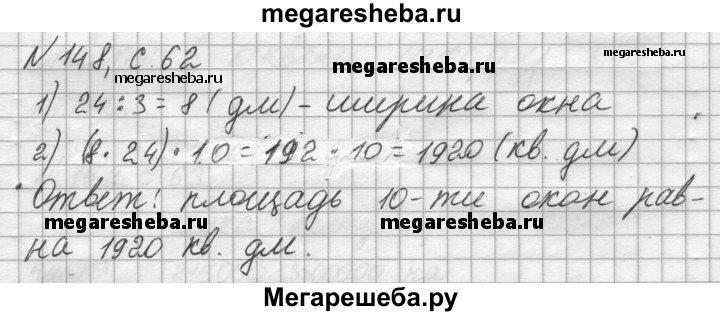 megaresheba.ru
N 148, с. 62
megaresheba.ru
megaresheba.ru
megaresheba.ru
1) 24 : 3 = 8 (дм) - ширина окна
2) (8 · 24) · 10 = 192 · 10 = 1920 (кв. дм)
Ответ: площадь 10-ти окон рав-
megaresheba.ru
megaresheba.ru
на 1920 кв. дм.
Мегарешеба.ру